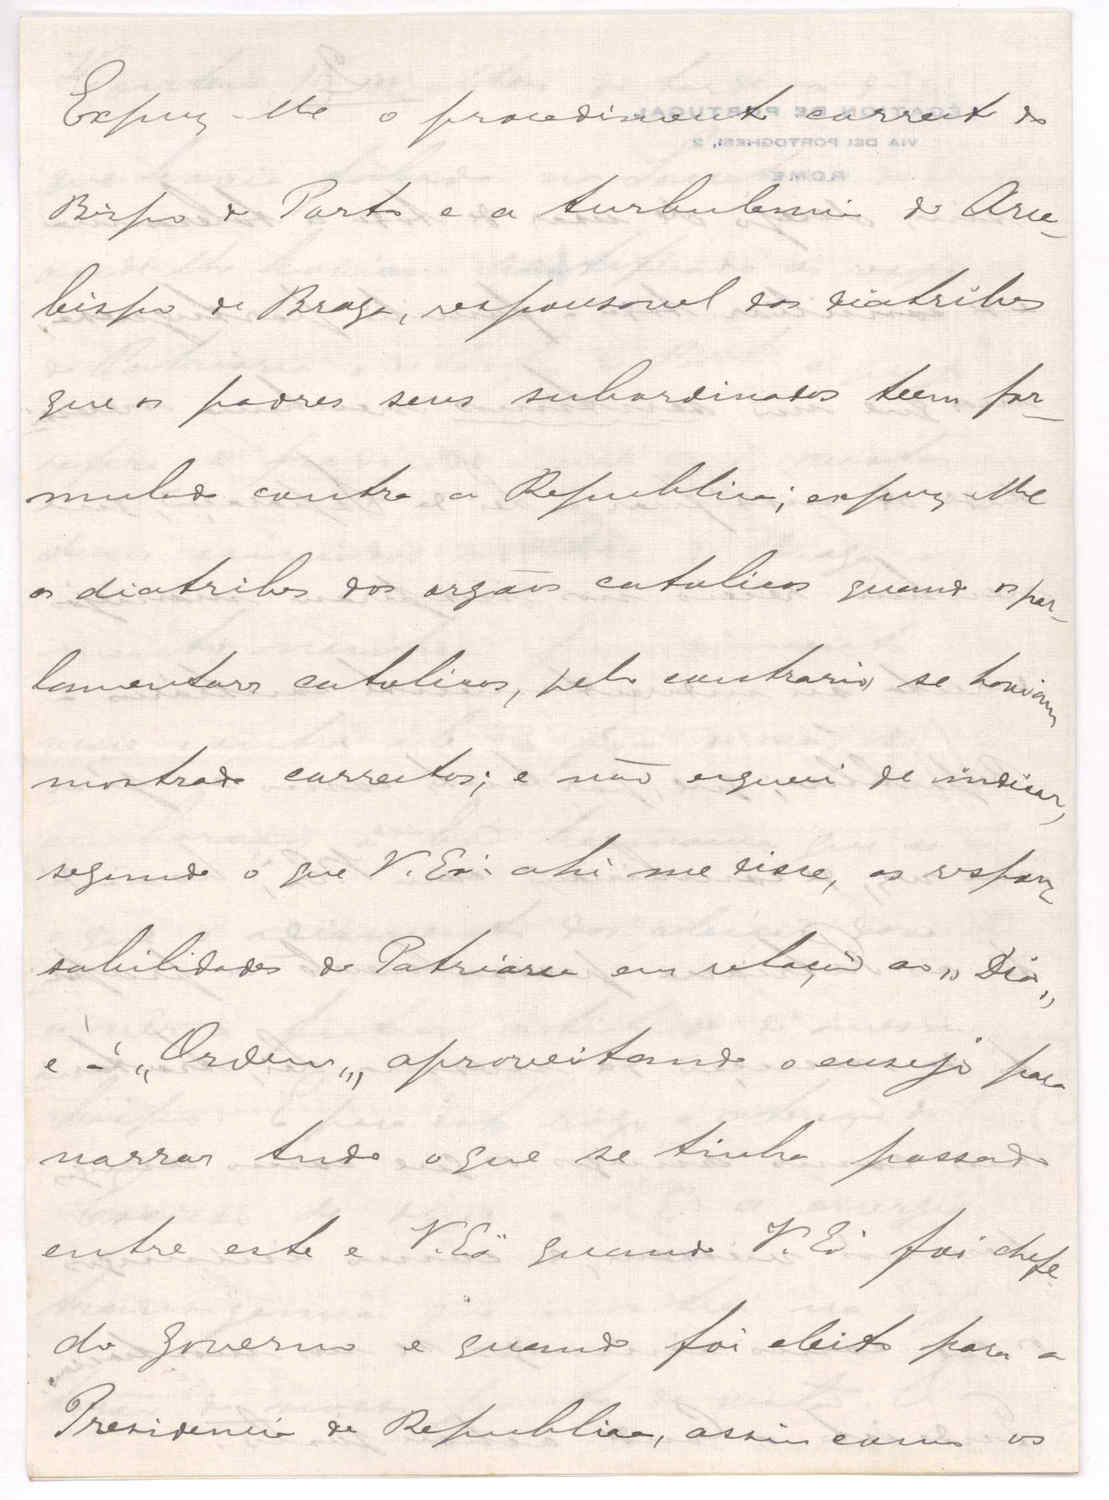 Expuz-lhe o procedimento correcto do
Bispo do Porto e a turbulencia do Arce-
bispo de Braga, responsavel das diatribes
que os padres seus subordinados teem for-
mulado contra a Republica; expuz-lhe
as diatribes dos orgãos catolicos quando os par-
lamentares catolicos, pelo contrario, se haviam
mostrado correctos; e não esqueci de indicar,
segundo o que V. Exª ahi me disse, as respon-
sabilidades do Patriarca em relação ao "Dia"
e á "Ordem", aproveitando o ensejo para
narrar tudo o que se tinha passado
entre este e V. Exª quando V. Exª foi chefe
do governo e quando foi eleito para a
Presidencia da Republica, assim como os
LEGATION DE PORTUGAL
VIA DEI PORTOGHESI, 2
ROME